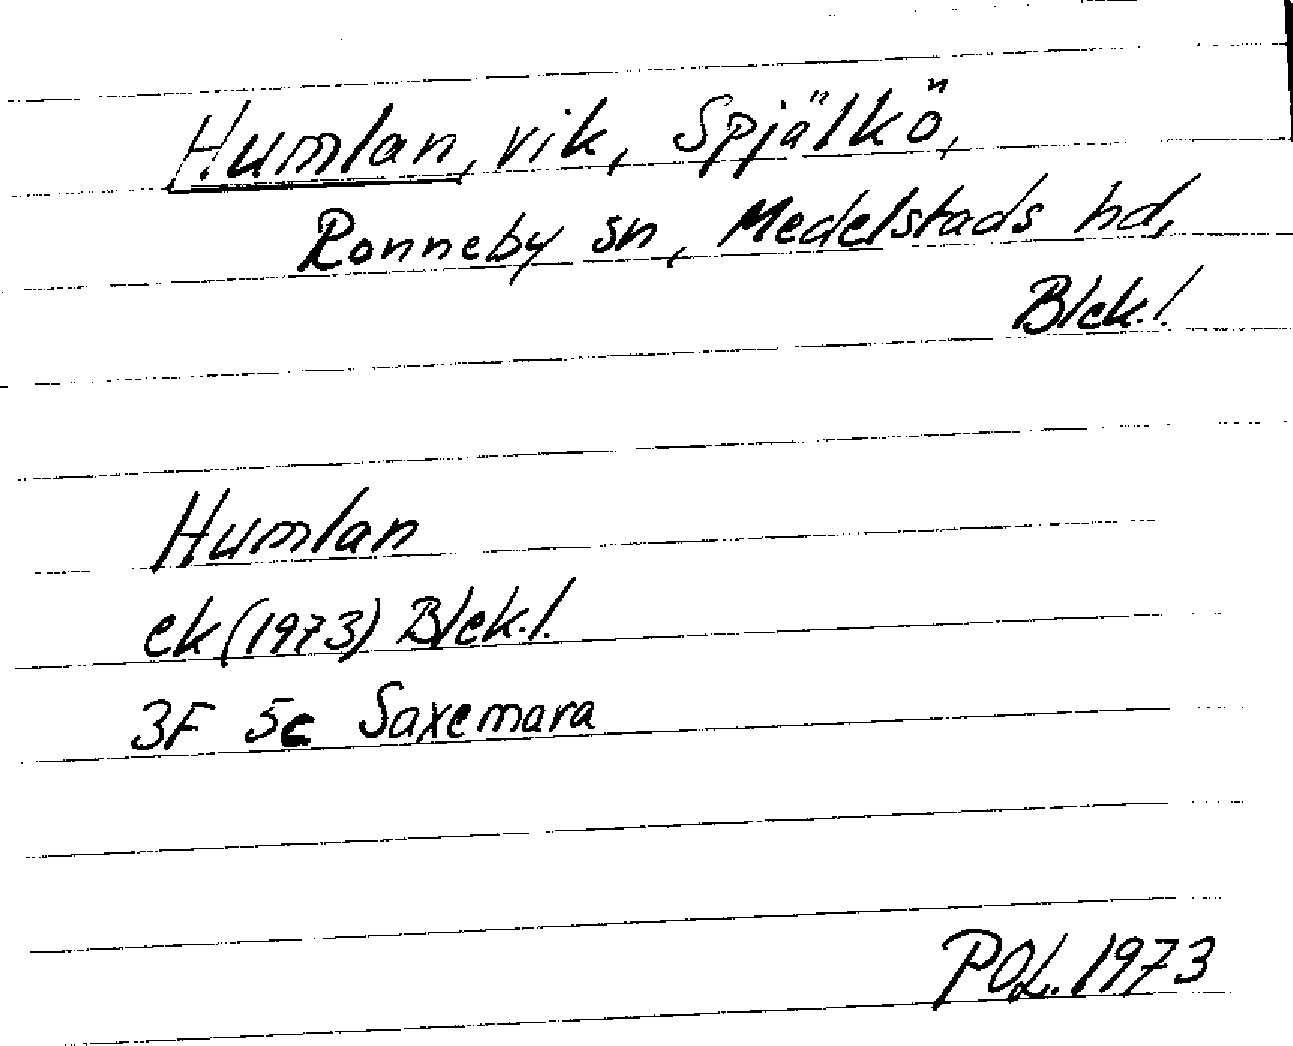 Humlan, vik, Spjälkö,
Ronneby sn, Medelstads hd,
Blek.l.
Humlan
ek (1973) Blek.l.
3F 5c Saxemara
POL. 1973